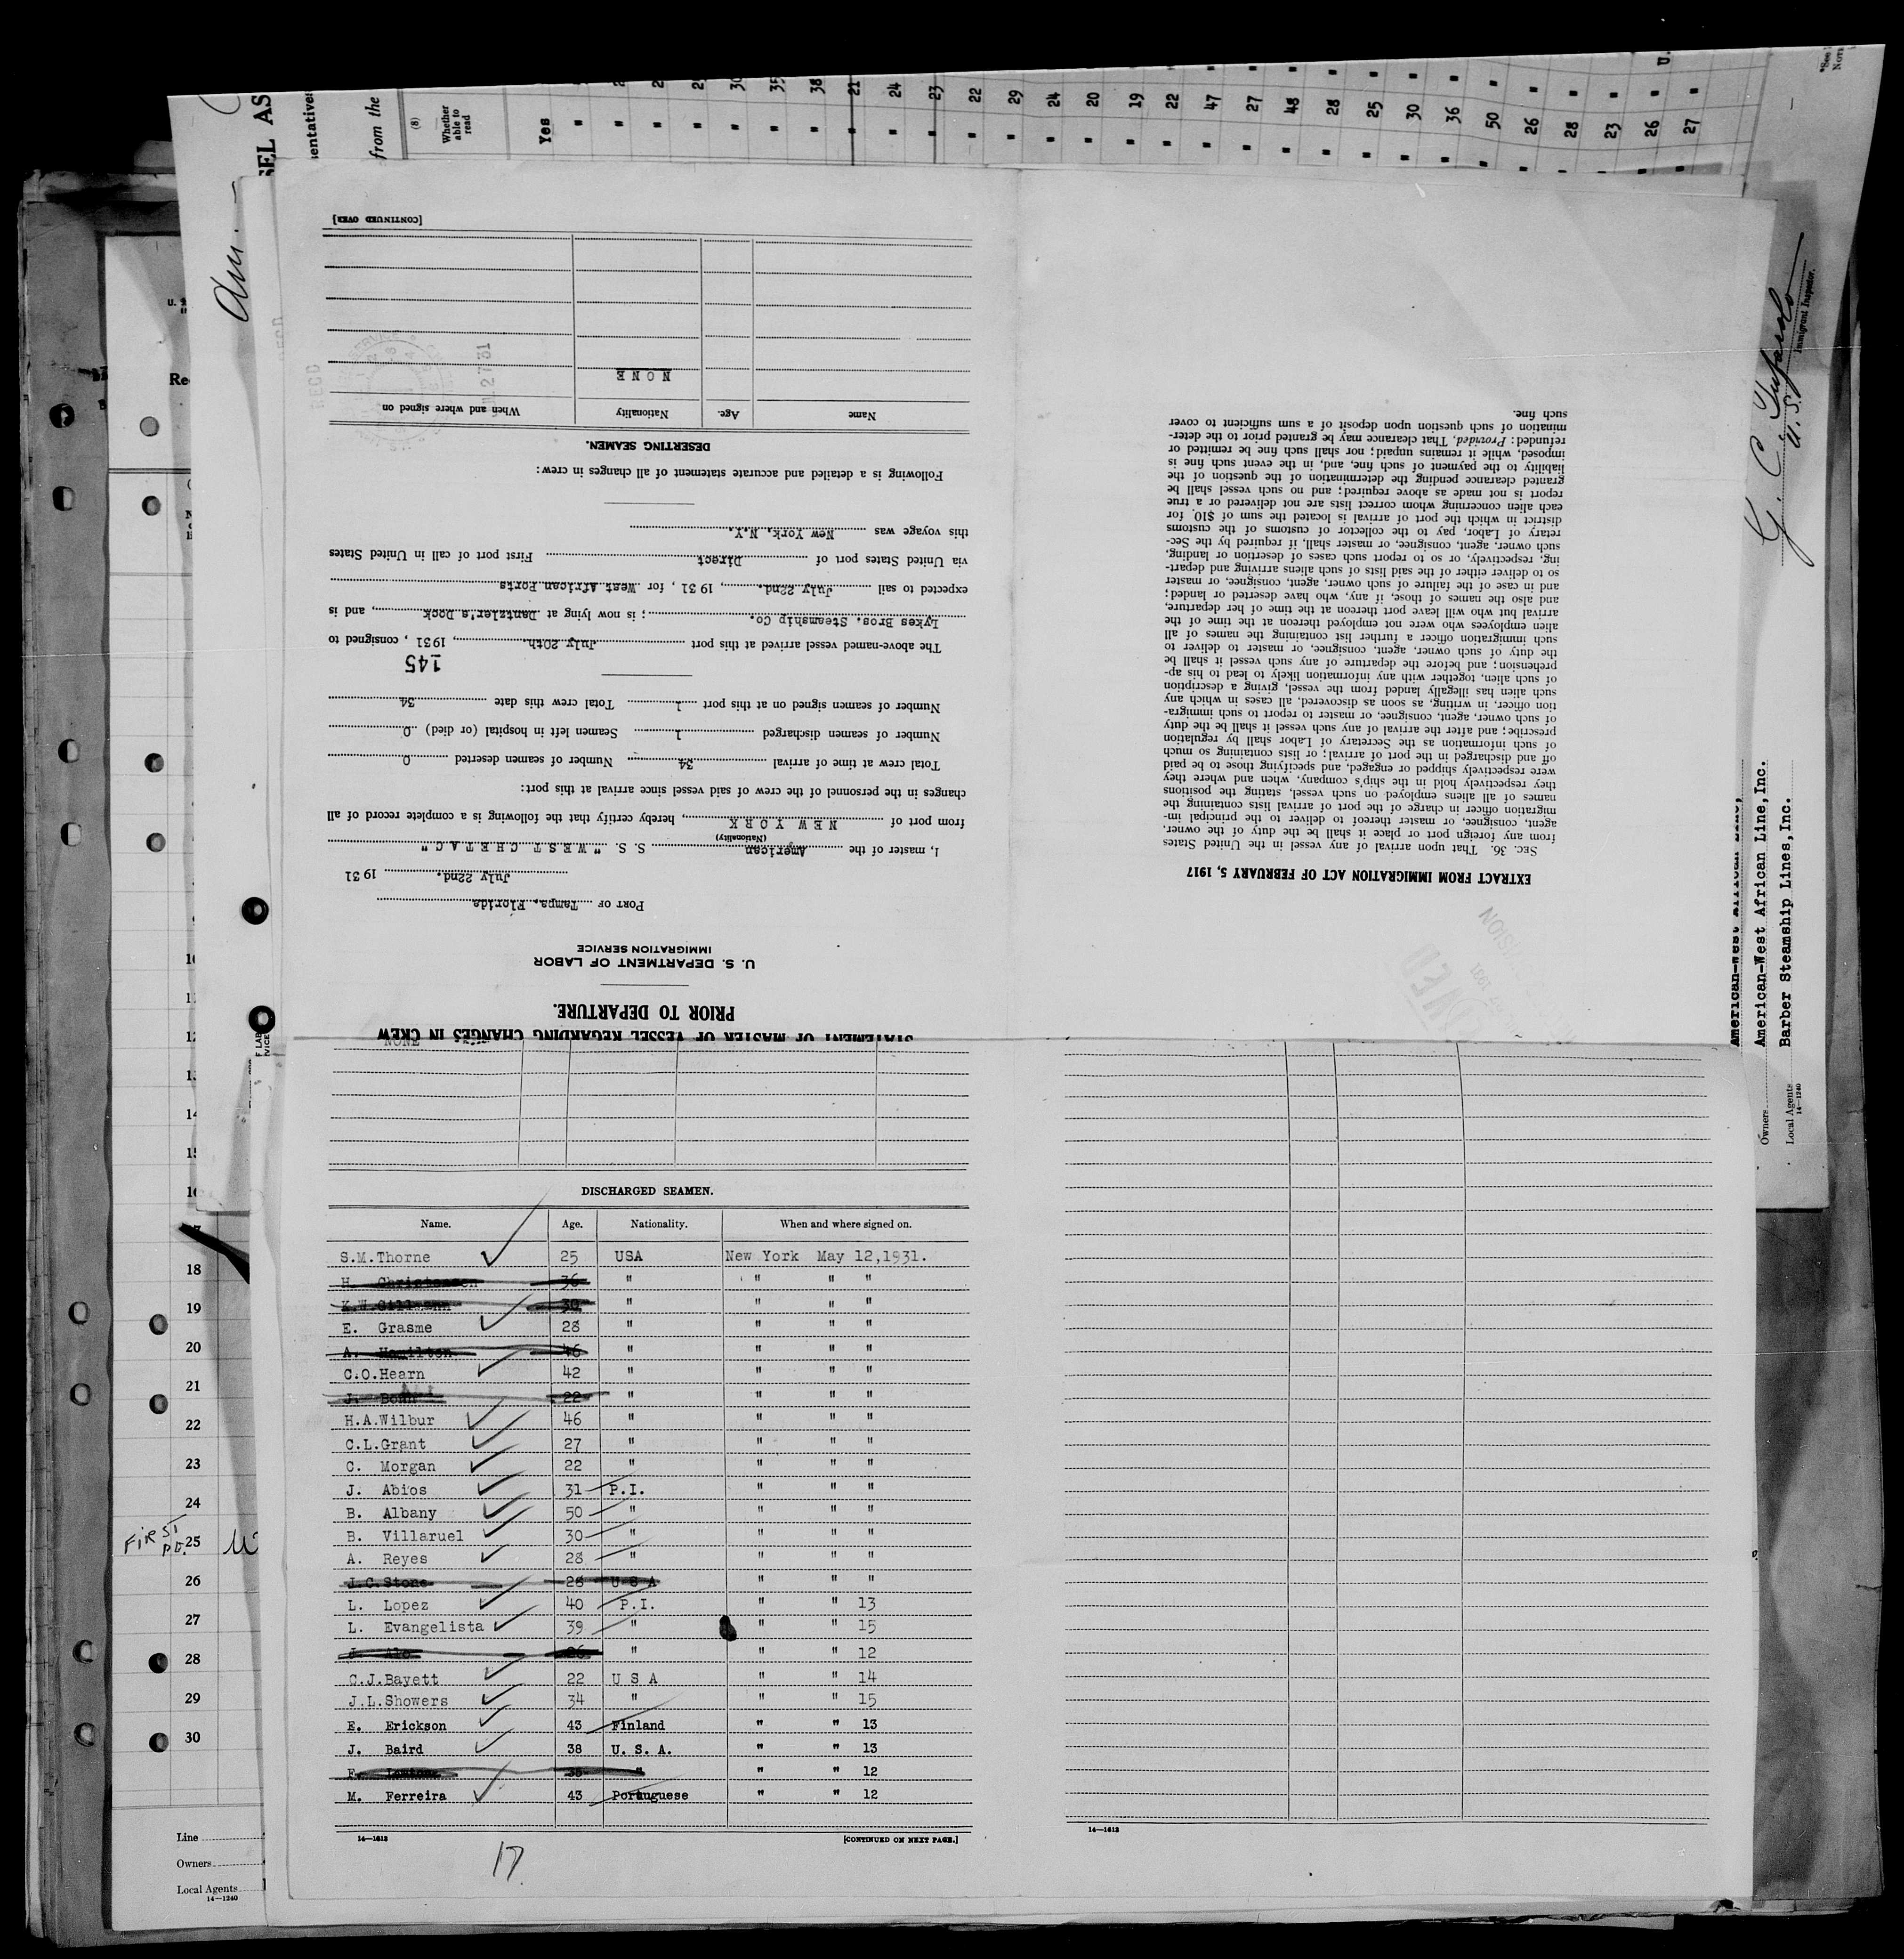 STATEMENT OF MASTER OF VESSEL REGARDING CHANGES IN CREW
PRIOR TO DEPARTURE.
U. S. DEPARTMENT OF LABOR
IMMIGRATION SERVICE
PORT OF Tampa, Florida
July 22nd. 1931
I, master of the American S. S. "WEST CHETAC"
(Nationality)
from port of NEW YORK, hereby certify that the following is a complete record of all
changes in the personnel of the crew of said vessel since arrival at this port:
Total crew at time of arrival 34 Number of seamen deserted 0
Number of seamen discharged 1 Seamen left in hospital (or died) 0
Number of seamen signed on at this port 1 Total crew this date 34
145
The above-named vessel arrived at this port July 20th, 1931, consigned to
Lykes Bros. Steamship Co.; is now lying at Dantzler's Dock, and is
expected to sail July 22nd., 1931, for West African Ports
via United States port of Direct First port of call in United States
this voyage was New York, N.Y.
Following is a detailed and accurate statement of all changes in crew:
DESERTING SEAMEN.
Name Age. Nationality When and where signed on
NONE
[CONTINUED OVER]
EXTRACT FROM IMMIGRATION ACT OF FEBRUARY 5, 1917
SEC. 36. That upon arrival of any vessel in the United States
from any foreign port or place it shall be the duty of the owner,
agent, consignee, or master thereof to deliver to the principal im-
migration officer in charge of the port of arrival lists containing the
names of all aliens employed on such vessel, stating the positions
they respectively hold in the ship's company, when and where they
were respectively shipped or engaged, and specifying those to be paid
off and discharged in the port of arrival; or lists containing so much
of such information as the Secretary of Labor shall by regulation
prescribe; and after the arrival of any such vessel it shall be the duty
of such owner, agent, consignee, or master to report to such immigra-
tion officer, in writing, as soon as discovered, all cases in which any
such alien has illegally landed from the vessel, giving a description
of such alien, together with any information likely to lead to his ap-
prehension; and before the departure of any such vessel it shall be
the duty of such owner, agent, consignee, or master to deliver to
such immigration officer a further list containing the names of all
alien employees who were not employed thereon at the time of the
arrival but who will leave port thereon at the time of her departure,
and also the names of those, if any, who have deserted or landed;
and in case of the failure of such owner, agent, consignee, or master
so to deliver either of the said lists of such aliens arriving and depart-
ing, respectively, or so to report such cases of desertion or landing,
such owner, agent, consignee, or master, shall, if required by the Sec-
retary of Labor, pay to the collector of customs of the customs
district in which the port of arrival is located the sum of $10 for
each alien concerning whom correct lists are not delivered or a true
report is not made as above required; and no such vessel shall be
granted clearance pending the determination of the question of the
liability to the payment of such fine, and, in the event such fine is
imposed, while it remains unpaid; nor shall such fine be remitted or
refunded: Provided, That clearance may be granted prior to the deter-
mination of such question upon deposit of a sum sufficient to cover
such fine.
NONE
DISCHARGED SEAMEN.
Name. Age. Nationality. When and where signed on.
S.M.Thorne 25 USA New York May 12,1931.
H. Christensen 36 " " " "
K.W.Gillmann 30 " " " "
E. Grasme 28 " " " "
A. Hamilton 46 " " " "
C.O.Hearn 42 " " " "
J. 22 " " " "
H.A.Wilbur 46 " " " "
C.L.Grant 27 " " " "
C. Morgan 22 " " " "
J. Abios 31 P.I. " " "
B. Albany 50 " " " "
B. Villaruel 30 " " " "
A. Reyes 28 " " " "
J.C.Stone 28 U S A " " "
L. Lopez 40 P.I. " " 13
L. Evangelista 39 " " " 15
26 " " " 12
C.J.Bayett 22 U S A " " 14
J.L.Showers 34 " " " 15
E. Erickson 43 Finland " " 13
J. Baird 38 U. S. A. " " 13
F. " " " 12
M. Ferreira 43 Portuguese " " 12
14—1613 [CONTINUED ON NEXT PAGE.]
17
14—1613
SEL AS
entatives
from the
(8)
Whether
able to
read
Yes
30 35 38 21 24 23 22 29 24 20 19 22 47 27 48 28 25 30 36 50 26 28 23 26 27
Immigrant Inspector.
American-West African Line,
Owners American-West African Line,Inc.
Local Agents Barber Steamship Lines,Inc.
14—1240
18
19
20
21
22
23
24
FIRST PG. 25
26
27
28
29
30
Line
Owners
Local Agents
14—1240